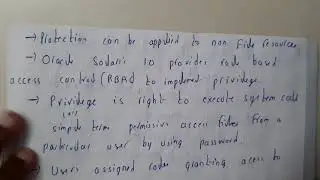 → Protection can be applied to non file resources
→ Oracle Solaris 10 provides role based
access control (RBAC) to implement privilege.
→ Privilege is right to execute system call
(or)
simple term permission access files from a
particular user by using password.
→ Users assigned roles granting access to